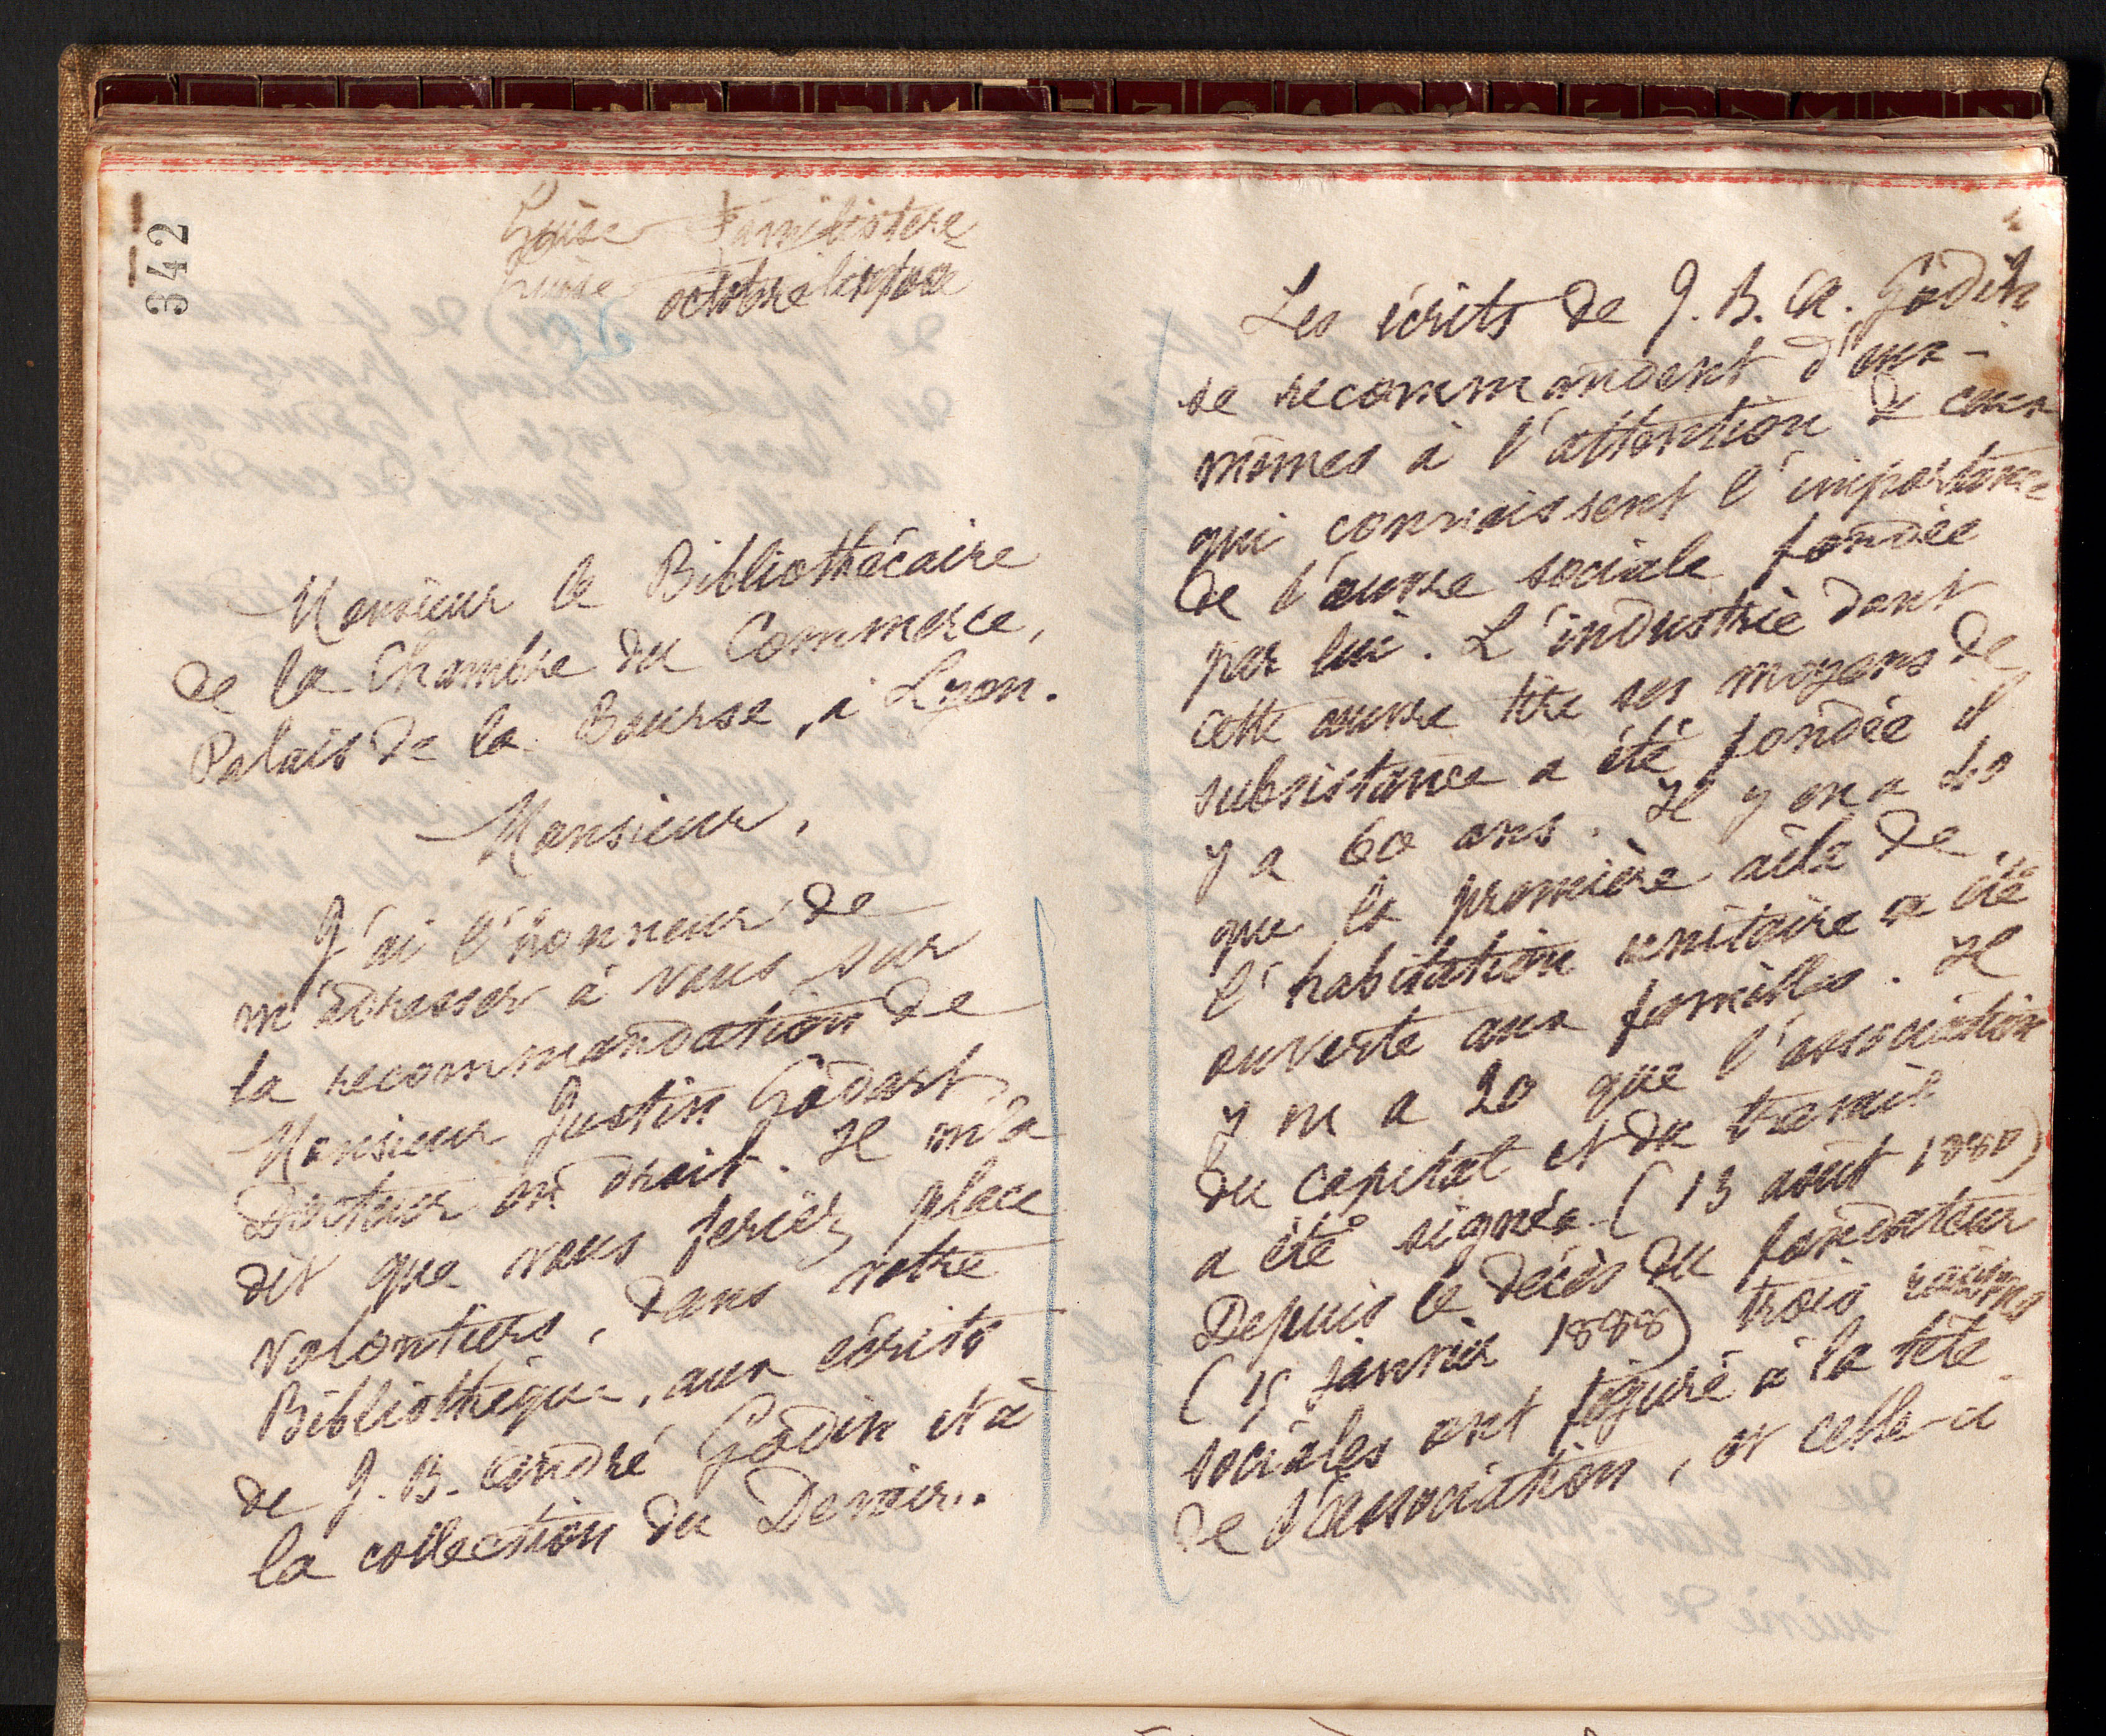 342
Guise Familistère
octobre
26
Monsieur le Bibliothécaire
de la Chambre du Commerce,
Palais de la Bourse, à Lyon.
Monsieur,
J'ai l'honneur de
m'adresser à vous sur
la recommandation de
Monsieur Justin Godart
Docteur en droit. Il m'a
dit que vous feriez place
volontiers, dans votre
Bibliothèque, aux écrits
de J. B. André Godin et à
la collection du Devoir.
Les écrits de J. B. A. Godin
se recommandent d'eux-
mêmes à l'attention de ceux
qui connaissent l'importance
de l'œuvre sociale fondée
par lui. L'industrie dont
cette œuvre tire ses moyens de
subsistance a été fondée il
y a 60 ans. Il y en a 40
que la première aile de
l'habitation unitaire a été
ouverte aux familles. Il
y en a 20 que l'association
du capital et du travail
a été signée (13 août 1880)
Depuis le décès du fondateur
(15 janvier 1888) trois raisons
sociales ont figuré à la tête
de l'association, or celle-ci